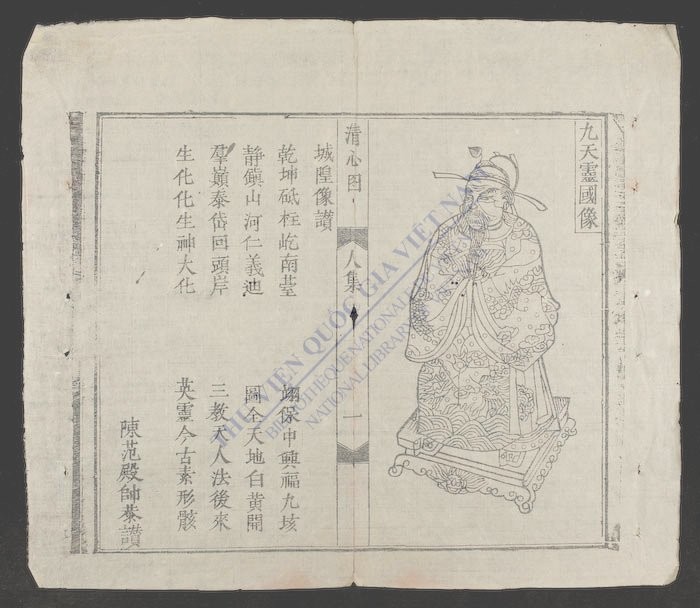 九天靈國像
清心图
人集
一
城隍像讃
乾坤砥柱屹南臺
翊保中興福九垓
靜鎮山河仁義迪
圖全天地白黄開
羣巔泰岱回頭岸
三教天人法後來
生化化生神大化
英靈今古素形骸
陳范殿帥恭讃
THƯ VIỆN QUỐC GIA VIỆT NAM
BIBLIOTHEQUE NATIONALE
NATIONAL LIBRARY